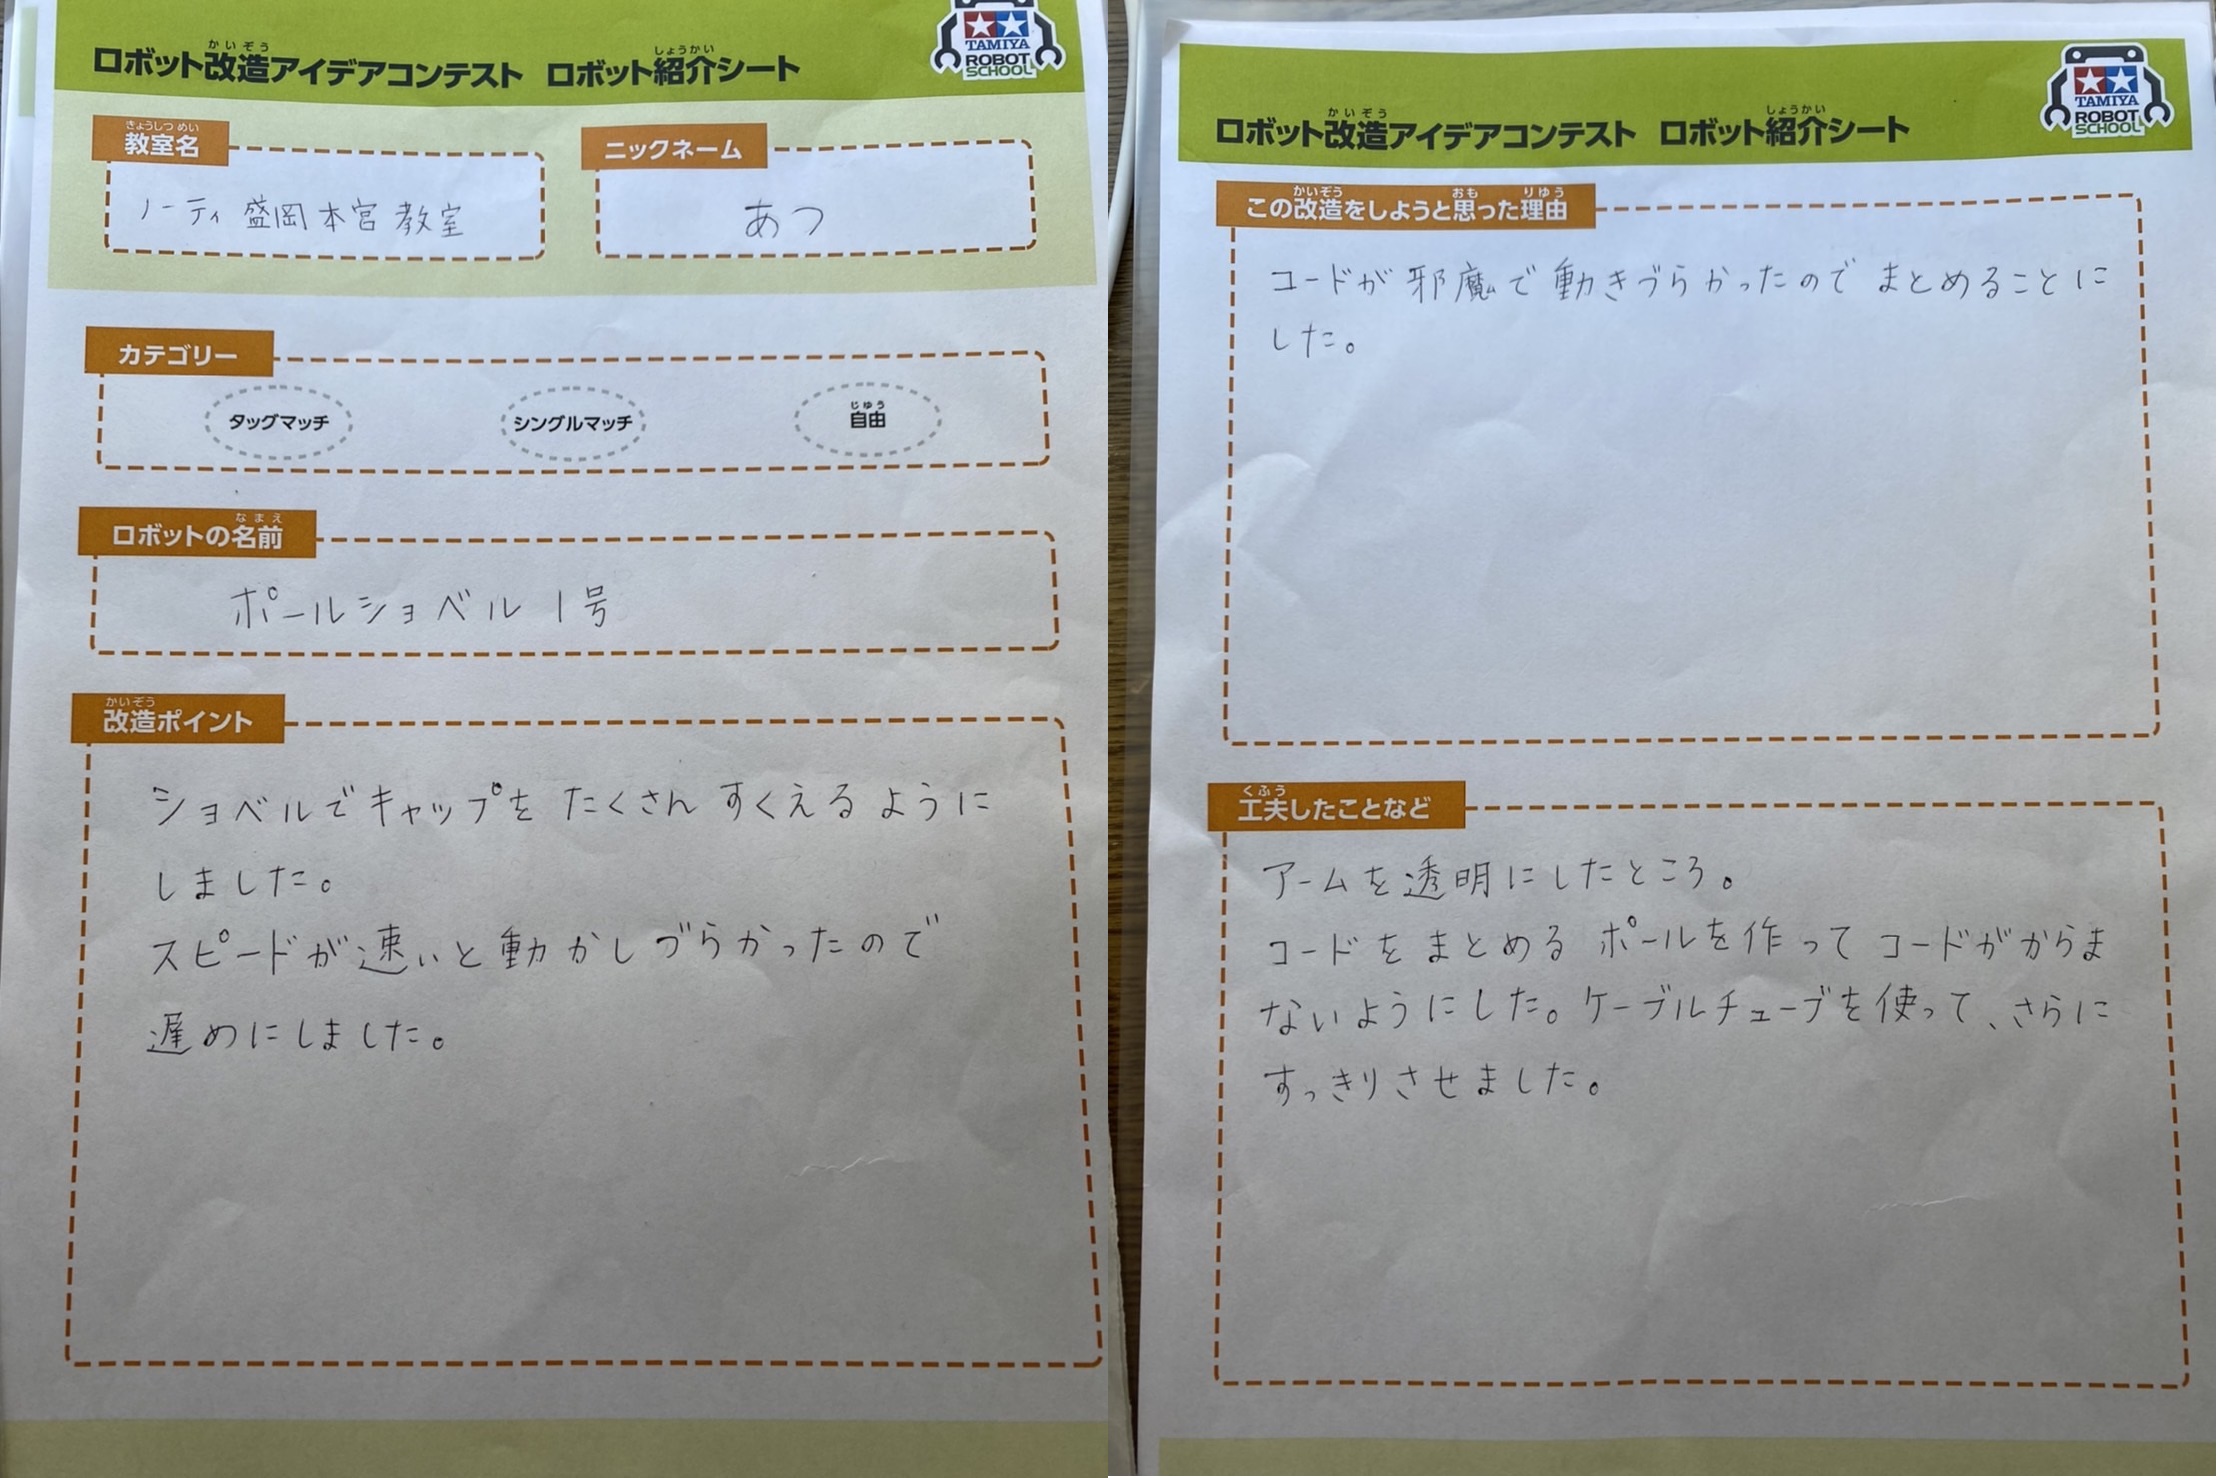 ロボット改造アイデアコンテスト ロボット紹介シート
かいぞう
しょうかい
TAMIYA
ROBOT
SCHOOL
教室名
きょうしつめい
ノーティ 盛岡本宮教室
ニックネーム
あつ
カテゴリー
タッグマッチ
シングルマッチ
じゆう
自由
ロボットの名前
なまえ
ポールショベル1号
かいぞう
改造ポイント
ショベルでキャップをたくさんすくえるように
しました。
スピードが速いと動かしづらかったので
遅めにしました。
ロボット改造アイデアコンテスト ロボット紹介シート
かいぞう
しょうかい
TAMIYA
ROBOT
SCHOOL
かいぞう おも りゆう
この改造をしようと思った理由
コードが邪魔で動きづらかったのでまとめることに
した。
くふう
工夫したことなど
アームを透明にしたところ。
コードをまとめるポールを作ってコードががらま
ないようにした。ケーブルチューブを使って、さらに
すっきりさせました。